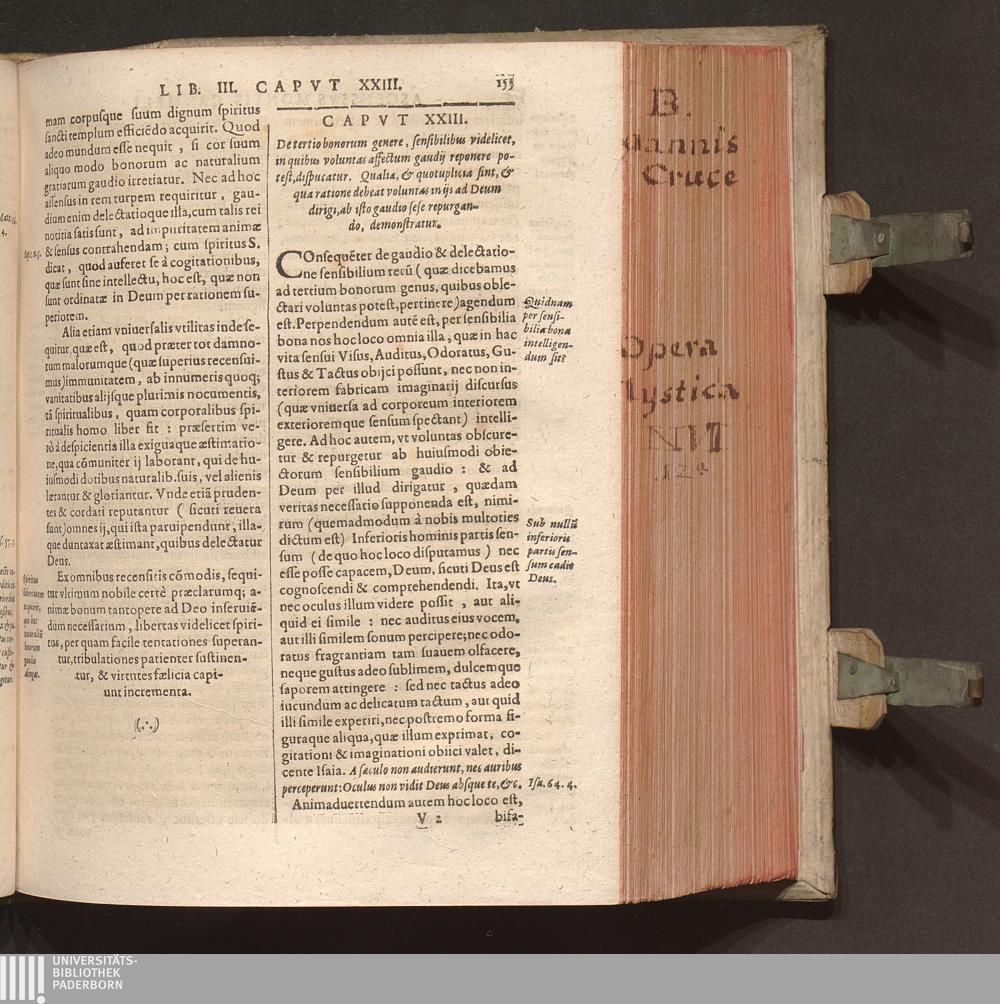 LIB. III. CAPVT XXIII. 155
mam corpusque suum dignum spiritus
sancti templum efficiẽdo acquirit. Quod
adeo mundum esse nequit, si cor suum
aliquo modo bonorum ac naturalium
gratiarum gaudio irretiatur. Nec ad hoc
assensus in rem turpem requiritur, gau-
dium enim delectatioque illa, cum talis rei
notitia satis sunt, ad impuritatem animæ
& sensus contrahendam; cum spiritus S.
dicat, quod auferet se à cogitationibus,
quæ sunt sine intellectu, hoc est, quæ non
sunt ordinatæ in Deum per rationem su-
periorem.
Alia etiam vniuersalis vtilitas inde se-
quitur, quæ est, quod præter tot damno-
rum malorumque (quæ superius recensui-
mus) immunitatem, ab innumeris quoq;
vanitatibus alijsque plurimis nocumentis,
tã spiritualibus, quam corporalibus spi-
ritualis homo liber fit: præsertim ve-
rò à despicientia illa exiguaque æstimatio-
ne, qua cõmuniter ij laborant, qui de hu-
iusmodi dotibus naturalib. suis, vel alienis
lætantur & gloriantur. Vnde etiã pruden-
tes & cordati reputantur (sicuti reuera
sunt) omnes ij, qui ista paruipendunt, illa-
que duntaxat æstimant, quibus delectatur
Deus.
Ex omnibus recensitis cõmodis, sequi-
tur vltimum nobile certè præclarumq; a-
nimæ bonum tantopere ad Deo inseruiẽ-
dum necessarium, libertas videlicet spiri-
tus, per quam facile tentationes superan-
tur, tribulationes patienter sustinen-
tur, & virtutes fælicia capi-
unt incrementa.
(∴)
CAPVT XXIII.
De tertio bonorum genere, sensibilibus videlicet,
in quibus voluntas affectum gaudij reponere po-
test, disputatur. Qualia, & quotuplicia sint, &
qua ratione debeat voluntas in ijs ad Deum
dirigi, ab isto gaudio sese repurgan-
do, demonstratur.
COnsequẽter de gaudio & delectatio-
ne sensibilium rerũ (quæ dicebamus
ad tertium bonorum genus, quibus oble-
ctari voluntas potest, pertinere) agendum
est. Perpendendum autẽ est, per sensibilia
bona nos hoc loco omnia illa, quæ in hac
vita sensui Visus, Auditus, Odoratus, Gu-
stus & Tactus obijci possunt, nec non in-
teriorem fabricam imaginarij discursus
(quæ vniuersa ad corporeum interiorem
exterioremque sensum spectant) intelli-
gere. Ad hoc autem, vt voluntas obscure-
tur & repurgetur ab huiusmodi obie-
ctorum sensibilium gaudio: & ad
Deum per illud dirigatur, quædam
veritas necessatio supponenda est, nimi-
rum (quemadmodum à nobis multoties
dictum est) Inferioris hominis partis sen-
sum (de quo hoc loco disputamus) nec
esse posse capacem, Deum, sicuti Deus est
cognoscendi & comprehendendi. Ita, vt
nec oculus illum videre possit, aut ali-
quid ei simile: nec auditus eius vocem,
aut illi similem sonum percipere; nec odo-
ratus fragrantiam tam suauem olfacere,
neque gustus adeo sublimem, dulcemque
saporem attingere: sed nec tactus adeo
iucundum ac delicatum tactum, aut quid
illi simile experiri, nec postremo forma fi-
guraque aliqua, quæ illum exprimat, co-
gitationi & imaginationi obiici valet, di-
cente Isaia. A sæculo non audierunt, nec auribus
perceperunt: Oculus non vidit Deus absque te, &c.
Animaduertendum autem hoc loco est,
V 2 bifa-
Quidnam
per sensi-
bilia bona
intelligen-
dum sit?
Sub nullũ
inferioris
partis sen-
sum cadit
Deus.
Isa. 64. 4.
B.
annis
Cruce
Opera
Mystica
124
UNIVERSITÄTS-
BIBLIOTHEK
PADERBORN